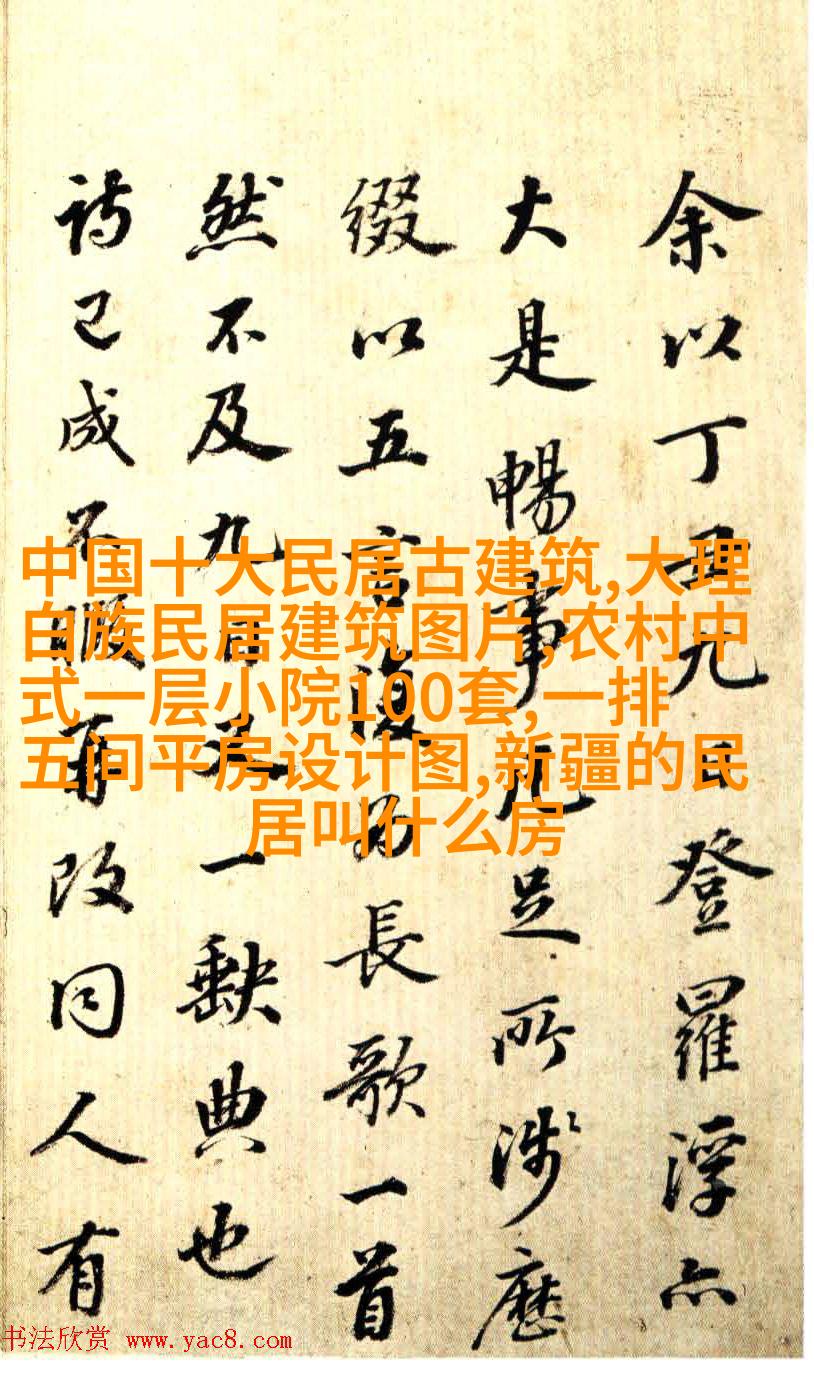 余以丁丑九日登羅浮亦
大是暢事凡足所涉歷
綴以五言復為長歌一首
然不及九日一缺典也
詩已成不暇再改同人有
中国十大民居古建筑,大理
白族民居建筑图片,农村中
式一层小院100套,一排
五间平房设计图,新疆的民
居叫什么房
书法欣赏 www.yac8.com